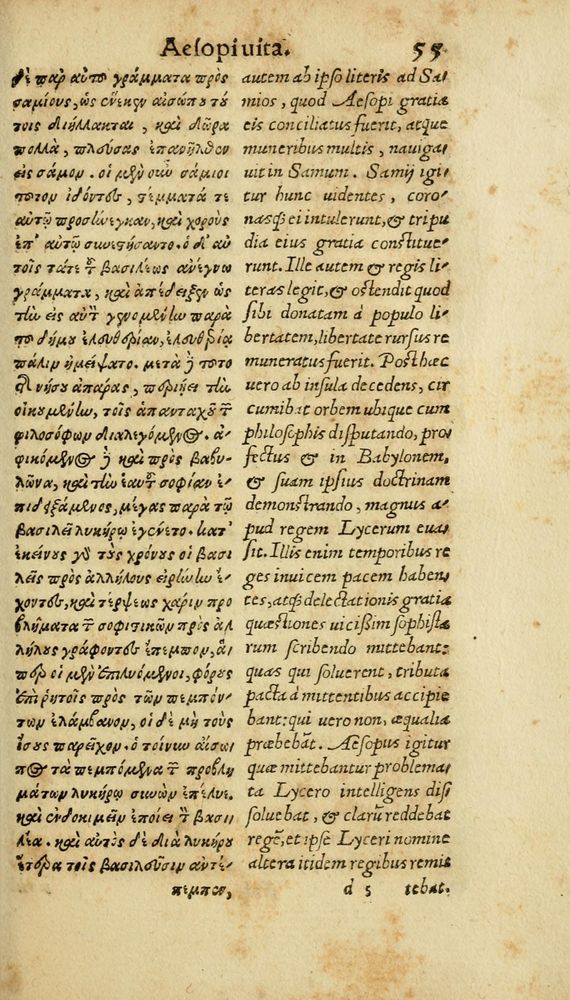 Aesopi vita. 55
δὲ παρ αὐτο͂ γράμματα πρὸς
σαμίους, ὡς ἕνεκεν αἰσώπου τού
τοις διήλλακται, καὶ δῶρα
πολλὰ, πλεύσας ἐπανῆλθεν
εἰς σάμον. οἱ μὲν οὖν σάμιοι
τοῦτον ἰδόντες, στέμματά τε
αὐτῷ προσήνεγκαν, καὶ χοροὺς
ἐπ' αὐτῷ συνεστήσαντο. ὁ δ' αὐ
τοῖς τάτε τοῦ βασιλέως ἀνέγνω
γράμματα, καὶ ἀπέδειξεν ὡς
τὴν εἰς αὐτὸν γενομένην παρὰ
τοῦ δήμου ἐλευθερίαν, ἐλευθερίᾳ
πάλιν ἠμείψατο. μετὰ δὲ τοῦτο
τῆς νήσου ἀπάρας, περιῄει τὴν
οἰκουμένην, τοῖς ἁπανταχοῦ τῶν
φιλοσόφων διαλεγόμενος. ἀ-
φικόμενος δὲ καὶ πρὸς βαβυ-
λῶνα, καὶ τὴν ἑαυτοῦ σοφίαν ἐ-
πιδειξάμενος, μέγας παρὰ τῷ
βασιλεῖ λυκήρῳ ἐγένετο. κατ'
ἐκείνους γὰρ τοὺς χρόνους οἱ βασι
λεῖς πρὸς ἀλλήλους εἰρήνην ἔ-
χοντες, καὶ τέρψεως χάριν προ
βλήματα τῶν σοφιστικῶν πρὸς ἀλ
λήλους γράφοντες ἔπεμπον, ἅ
περ οἱ μὲν ἐπιλυόμενοι, φόρους
ἐπὶ ῥητοῖς πρὸς τῶν πεμπόν-
των ἐλάμβανον, οἱ δὲ μὴ τοὺς
ἴσους παρεῖχον. ὁ τοίνυν αἴσω
πος τὰ πεμπόμενα τῶν προβλη
μάτων λυκήρῳ συνιὼν ἐπέλυε.
καὶ εὐδοκιμεῖν ἐποίει τὸν βασι
λέα. καὶ αὐτὸς δὲ διὰ λυκήρου
ἕτερα τοῖς βασιλεῦσιν ἀντέ-
πεμπεν,
autem ab ipso literis ad Sa-
mios, quod Aesopi gratia
eis conciliatus fuerit, atque
muneribus multis, nauiga-
uit in Samum. Samij igi-
tur hunc uidentes, coro-
nasq; ei intulerunt, & tripu
dia eius gratia constitue-
runt. Ille autem & regis li-
teras legit, & ostendit quod
sibi donatam à populo li-
bertatem, libertate rursus re
muneratus fuerit. Post hæc
uero ab insula decedens, cir
cumibat orbem ubique cum
philosophis disputando, pro
fectus & in Babylonem,
& suam ipsius doctrinam
demonstrando, magnus a-
pud regem Lycerum eua-
sit. Illis enim temporibus re
ges inuicem pacem haben-
tes, atq; delectationis gratia
quæstiones uicissim sophista
rum scribendo mittebant:
quas qui soluerent, tributa
pacta à mittentibus accipie
bant: qui uero non, æqualia
præbebāt. Aesopus igitur
quæ mittebantur problema
ta Lycero intelligens dis
soluebat, & clarū reddebat
regē, et ipse Lyceri nomine
altera itidem regibus remit
d 5 tebat.